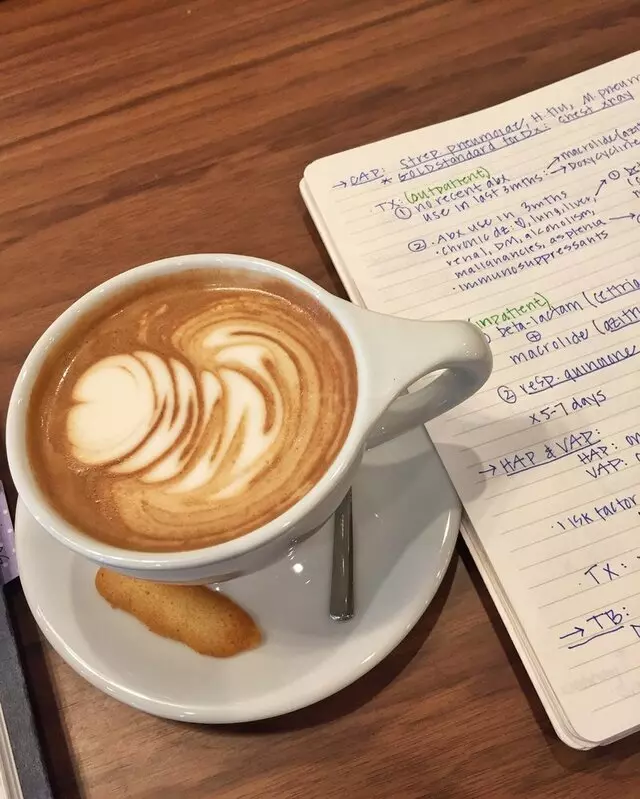 → CAP: Strep pneumoniae, H. flu, M. pneum
* Gold standard for Dx: chest xray
TX: (outpatient)
① no recent abx use in last 3mths: → macrolide
→ Doxycycline
② • Abx use in 3mths → ①
• chronic dz: ♡, lung, liver,
renal, DM, alcoholism,
malignancies, asplenia →
• immunosuppressants
(inpatient)
beta-lactam
⊕
macrolide
② resp. quinolone
x5-7 days
→ HAP & VAP:
HAP:
VAP:
• risk factor
TX:
→ TB: